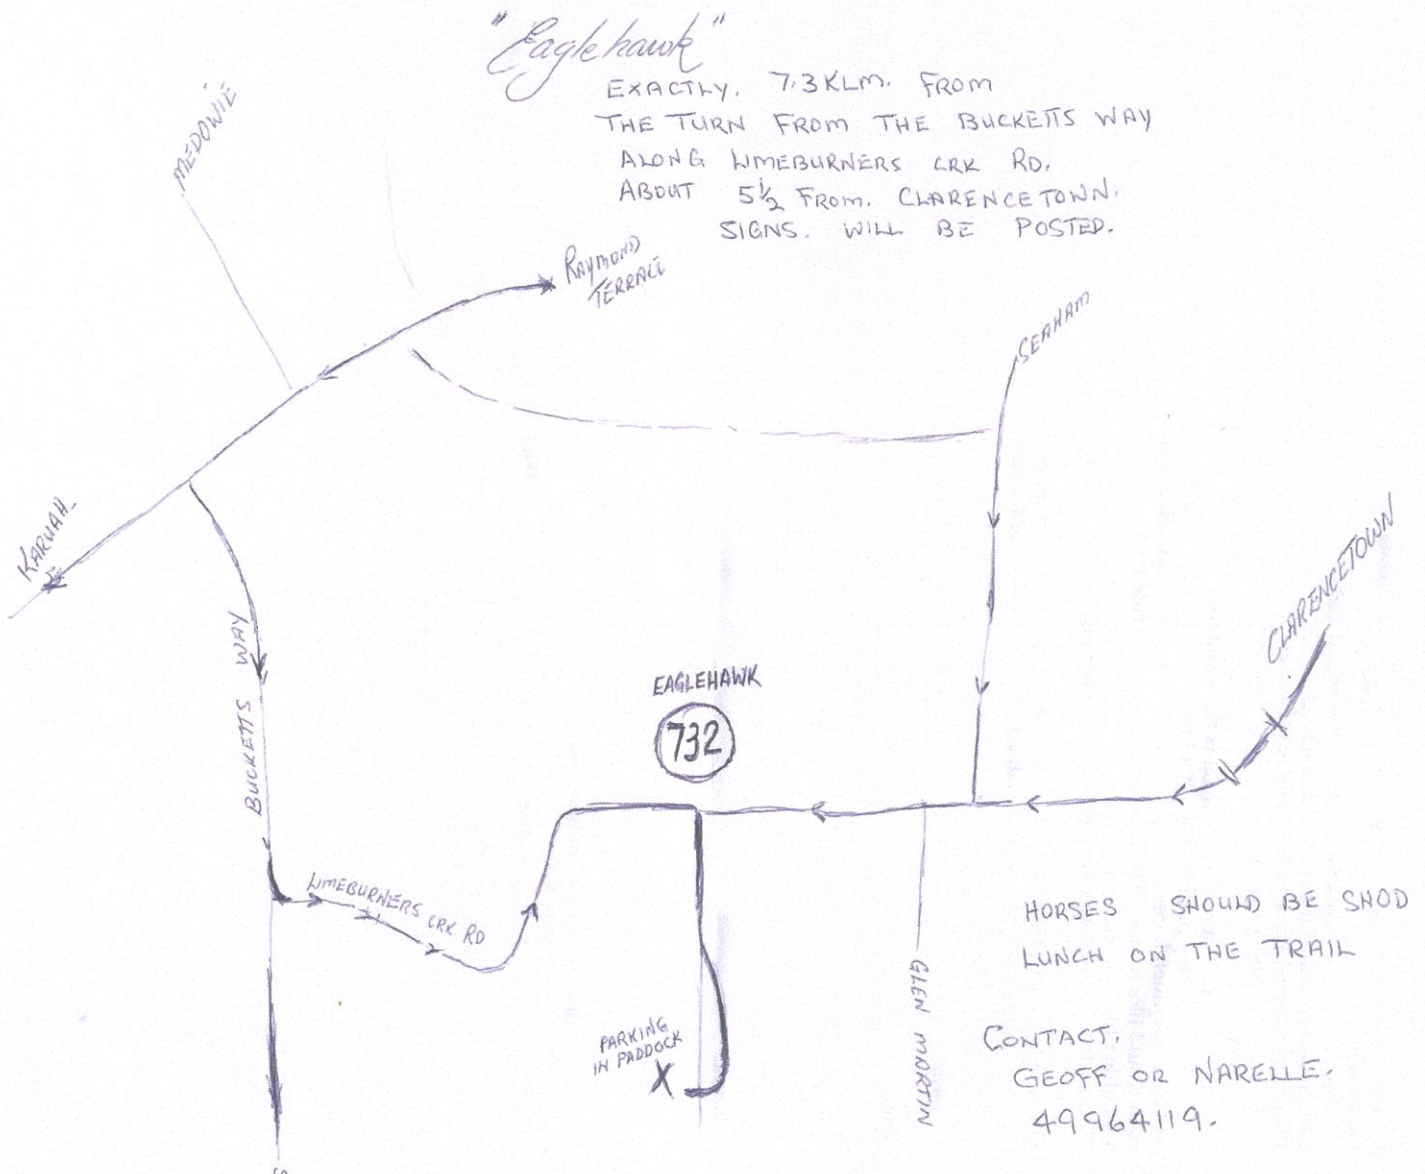 "Eaglehawk"
EXACTLY. 7.3KLM. FROM
THE TURN FROM THE BUCKETTS WAY
ALONG LIMEBURNERS CRK RD.
ABOUT 5½ FROM. CLARENCETOWN.
SIGNS. WILL BE POSTED.
MEDOWIE
RAYMOND
TERRACE
SEAHAM
KARUAH
CLARENCETOWN
BUCKETTS WAY
EAGLEHAWK
732
LIMEBURNERS CRK RD
HORSES SHOULD BE SHOD
LUNCH ON THE TRAIL
PARKING
IN PADDOCK
X
GLEN MARTIN
CONTACT.
GEOFF OR NARELLE.
49964119.